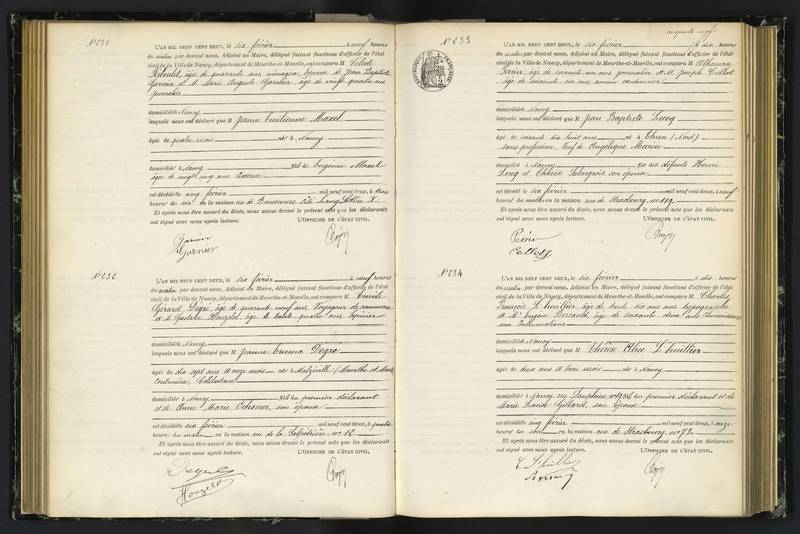 N° 231
L'AN MIL NEUF CENT DEUX, le six février à neuf heures
du matin par devant nous, Adjoint au Maire, délégué faisant fonctions d'officier de l'état
civil de la Ville de Nancy, département de Meurthe-et-Moselle, ont comparu M
âgée de quarante ans, ménagère, épouse de Jean Baptiste
Garnier et M Marie Auguste Garnier, âgé de vingt quatre ans
journalier
domiciliés à Nancy
lesquels nous ont déclaré que M Jeanne Emilienne Maxel
âgée de quatre mois née à Nancy
domiciliée à Nancy fille de Eugénie Maxel
âgée de vingt cinq ans
est décédée le cinq février mil neuf cent deux, à trois
heures du soir en la maison rue de
Et après nous être assuré du décès, nous avons dressé le présent acte que les déclarants
ont signé avec nous après lecture. L'OFFICIER DE L'ÉTAT CIVIL,
Garnier
Garnier
N° 232
L'AN MIL NEUF CENT DEUX, le six février à neuf heures
du matin par devant nous, Adjoint au Maire, délégué faisant fonctions d'officier de l'état
civil de la Ville de Nancy, département de Meurthe-et-Moselle, ont comparu M Emile
Gérard Dégré, âgé de quarante neuf ans, Voyageur de commerce
et M Gustave Houzelot, âgé de trente quatre ans, Epicier
domiciliés à Nancy
lesquels nous ont déclaré que M Jeanne Emma Dégré
âgée de dix sept ans et onze mois née à Malzéville (Meurthe et Moselle)
couturière, Célibataire
domiciliée à Nancy fille du premier déclarant
et de Anne Marie son épouse
est décédée le six février mil neuf cent deux, à quatre
heures du matin en la maison rue de la Salpêtrière, n° 12
Et après nous être assuré du décès, nous avons dressé le présent acte que les déclarants
ont signé avec nous après lecture. L'OFFICIER DE L'ÉTAT CIVIL,
Houzelot
N° 233
L'AN MIL NEUF CENT DEUX, le six février à dix heures
du matin par devant nous, Adjoint au Maire, délégué faisant fonctions d'officier de l'état
civil de la Ville de Nancy, département de Meurthe-et-Moselle, ont comparu M
âgé de soixante un ans journalier et M Joseph Collot
âgé de soixante six ans ancien cantonnier
domiciliés à Nancy
lesquels nous ont déclaré que M Jean Baptiste Lecoq
âgé de soixante dix huit ans né à (Nord)
sans profession, Veuf de Angélique Marin
domicilié à Nancy fils des défunts Henri
Lecoq et Thérèse son épouse
est décédé le six février mil neuf cent deux, à neuf
heures du matin en la maison rue de Strasbourg, n° 119
Et après nous être assuré du décès, nous avons dressé le présent acte que les déclarants
ont signé avec nous après lecture. L'OFFICIER DE L'ÉTAT CIVIL,
Collot
N° 234
L'AN MIL NEUF CENT DEUX, le six février à dix heures
du matin par devant nous, Adjoint au Maire, délégué faisant fonctions d'officier de l'état
civil de la Ville de Nancy, département de Meurthe-et-Moselle, ont comparu M Charles
François L'huillier, âgé de trente six ans typographe
et M Eugène Bersand, âgé de soixante deux ans Commissaire
aux Inhumations
domiciliés à Nancy
lesquels nous ont déclaré que M Thérèse Alice L'huillier
âgée de deux ans et trois mois née à Nancy
domiciliée à Nancy, rue Dauphine, fille du premier déclarant et de
Marie Louise Gillard, son épouse
est décédée le cinq février mil neuf cent deux, à onze
heures du soir en la maison rue de Strasbourg n° 73
Et après nous être assuré du décès, nous avons dressé le présent acte que les déclarants
ont signé avec nous après lecture. L'OFFICIER DE L'ÉTAT CIVIL,